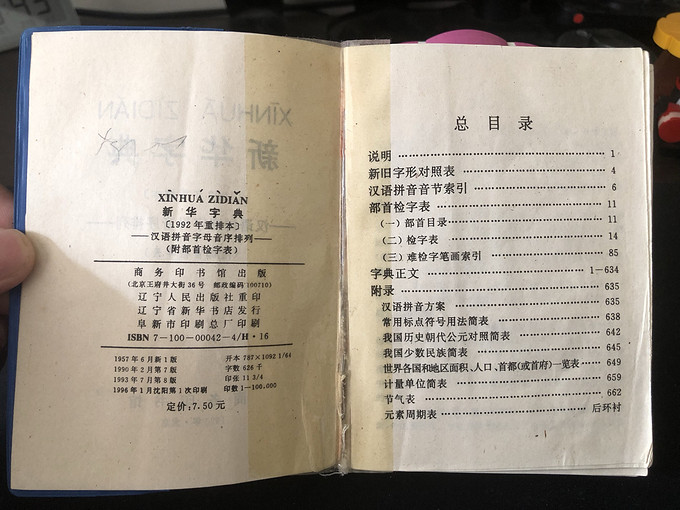 XĪNHUÁ ZÌDIǍN
新华字典
〔1992年重排本〕
——汉语拼音字母音序排列——
(附部首检字表)
商务印书馆出版
(北京王府井大街36号 邮政编码100710)
辽宁人民出版社重印
辽宁省新华书店发行
阜新市印刷总厂印刷
ISBN 7-100-00042-4/H·16
1957年6月新1版 开本 787×1092 1/64
1990年2月第7版 字数 626千
1993年7月第8版 印张 11 3/4
1996年1月沈阳第1次印刷 印数 1-100.000
定价:7.50元
总目录
说明 …… 1
新旧字形对照表 …… 4
汉语拼音音节索引 …… 6
部首检字表 …… 11
(一)部首目录 …… 11
(二)检字表 …… 14
(三)难检字笔画索引 …… 85
字典正文 …… 1-634
附录 …… 635
汉语拼音方案 …… 635
常用标点符号用法简表 …… 638
我国历史朝代公元对照简表 …… 642
我国少数民族简表 …… 645
世界各国和地区面积、人口、首都(或首府)一览表 …… 649
计量单位简表 …… 659
节气表 …… 662
元素周期表 …… 后环衬
XĪNHUÁ ZÌDIǍN
新华字典